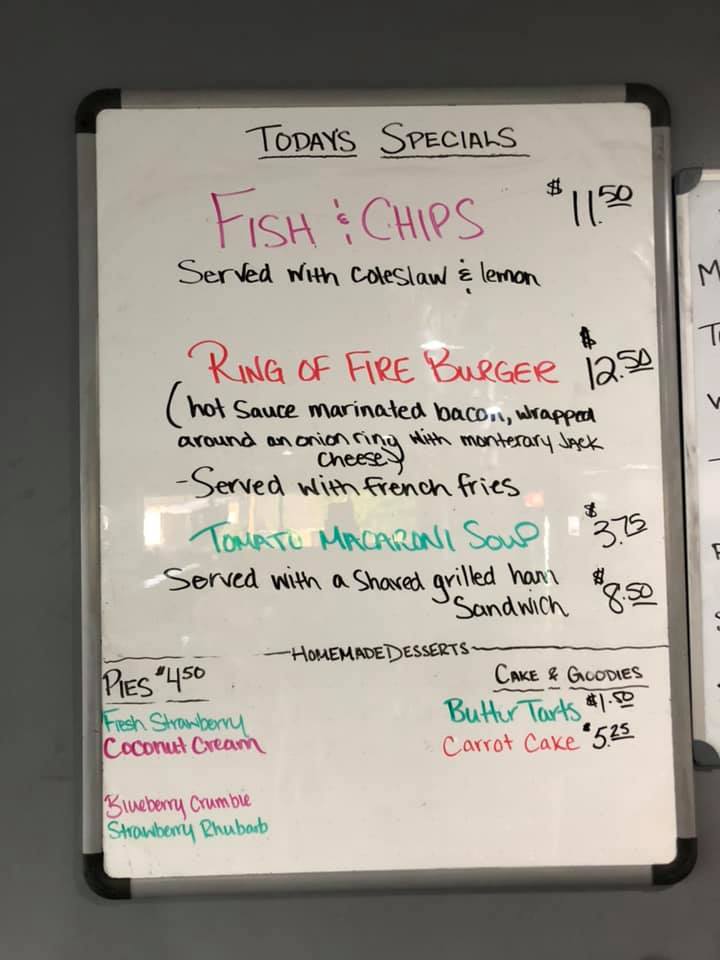 TODAYS SPECIALS
FISH & CHIPS $11.50
Served with coleslaw & lemon
RING OF FIRE BURGER $12.50
(hot sauce marinated bacon, wrapped
around an onion ring with monterary Jack
cheese)
-Served with french fries
TOMATO MACARONI SOUP $3.75
Served with a shaved grilled ham
Sandwich $8.50
HOMEMADE DESSERTS
PIES $4.50
Fresh Strawberry
Coconut Cream
Blueberry Crumble
Strawberry Rhubarb
CAKE & GOODIES
Butter Tarts $1.50
Carrot Cake $5.25
M
T